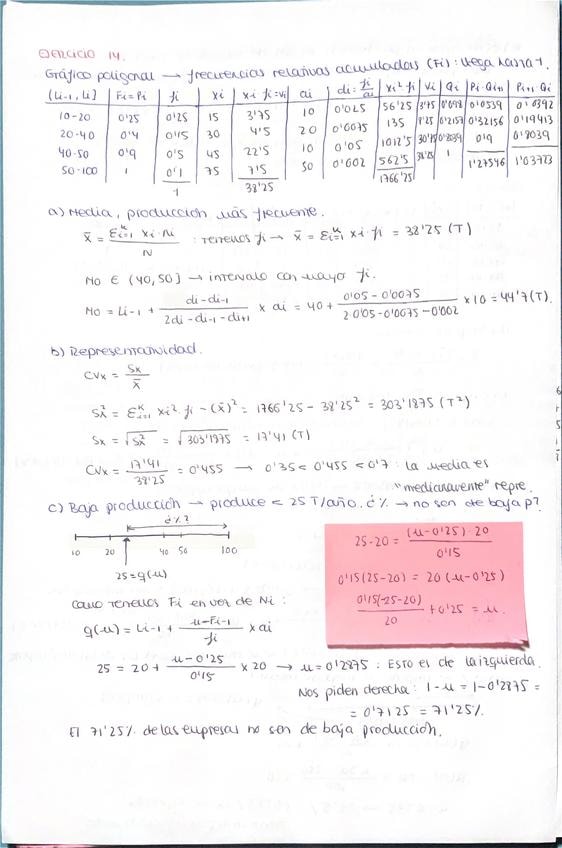 EJERCICIO 14.
Gráfico poligonal → frecuencias relativas acumuladas (Fi): llega hasta 1.
(Li-1, Li] Fi=Pi fi xi xi·fi=vi ai di=fi/ai xi²·fi Vi Qi Pi·Qi+1 Pi+1·Qi
10-20 0'25 0'25 15 3'75 10 0'025 56'25 3'75 0'098 0'0539 0'0392
20-40 0'4 0'15 30 4'5 20 0'0075 135 8'25 0'2157 0'32156 0'19413
40-50 0'9 0'5 45 22'5 10 0'05 1012'5 30'75 0'8039 0'9 0'8039
50-100 1 0'1 75 7'5 50 0'002 562'5 38'25 1 1'27546 1'03723
1 38'25 1766'25
a) Media, producción más frecuente.
x̄ = Σᵢ₌₁ᴷ xi·Ni / N : tenemos fi → x̄ = Σᵢ₌₁ᴷ xi·fi = 38'25 (T)
Mo ∈ (40,50] → intervalo con mayor fi.
Mo = Li-1 + (di-di-1) / (2di-di-1-di+1) × ai = 40 + (0'05-0'0075) / (2·0'05-0'0075-0'002) × 10 = 44'7 (T).
b) Representatividad.
CVx = Sx / x̄
Sx² = Σᵢ₌₁ᴷ xi²·fi - (x̄)² = 1766'25 - 38'25² = 303'1875 (T²)
Sx = √Sx² = √303'1975 = 17'41 (T)
CVx = 17'41 / 38'25 = 0'455 → 0'35 < 0'455 < 0'7 : la media es
"medianamente" repre.
c) Baja producción → produce < 25 T/año. ¿% → no son de baja p?
¿%?
10 20 40 50 100
25 = q(u)
Como tenemos Fi en vez de Ni :
q(u) = Li-1 + (u-Fi-1) / fi × ai
25-20 = (u-0'25)·20 / 0'15
0'15(25-20) = 20(u-0'25)
0'15(25-20) / 20 + 0'25 = u.
25 = 20 + (u-0'25) / 0'15 × 20 → u = 0'2875 : Esto es de la izquierda.
Nos piden derecha : 1-u = 1-0'2875 =
= 0'7125 = 71'25%.
El 71'25% de las empresas no son de baja producción.